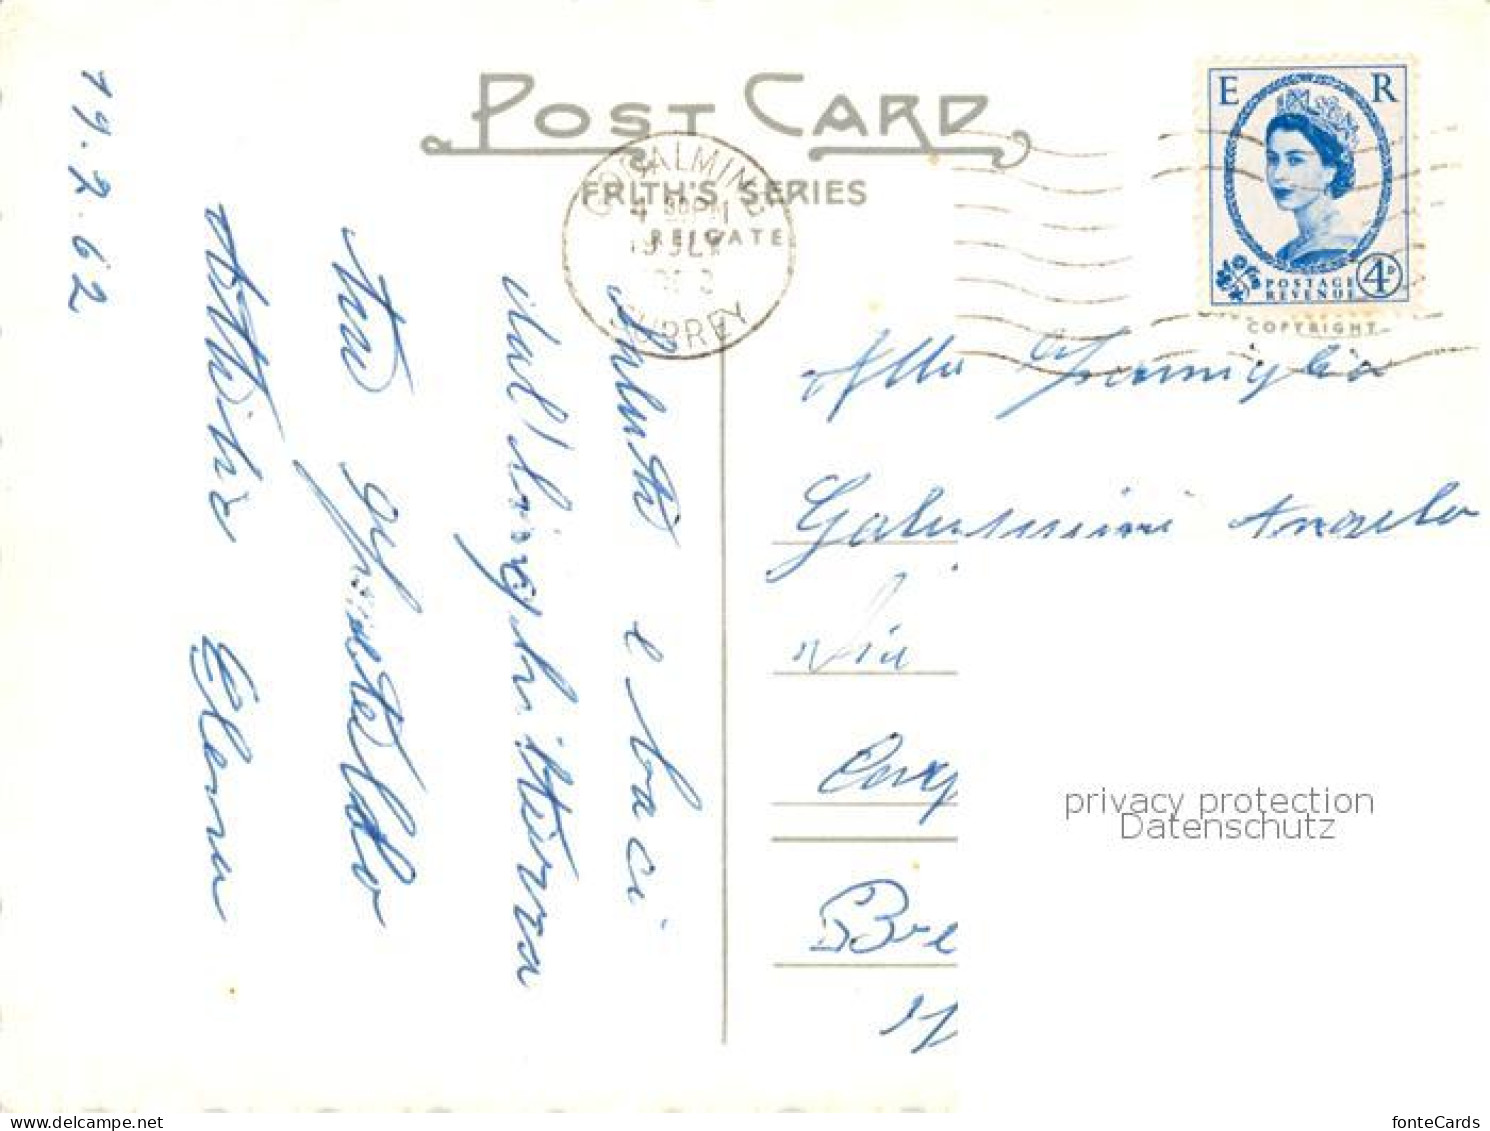 POST CARD
FRITH'S SERIES
REIGATE
GODALMING
4 30 PM
19 JLY
1962
SURREY
E R
POSTAGE
REVENUE
4D
COPYRIGHT
19.7.62
Saluti e baci
dall'Inghilterra
Attilio Elena
Alla Famiglia
Galussini Angelo
Via
privacy protection
Datenschutz
fonteCards